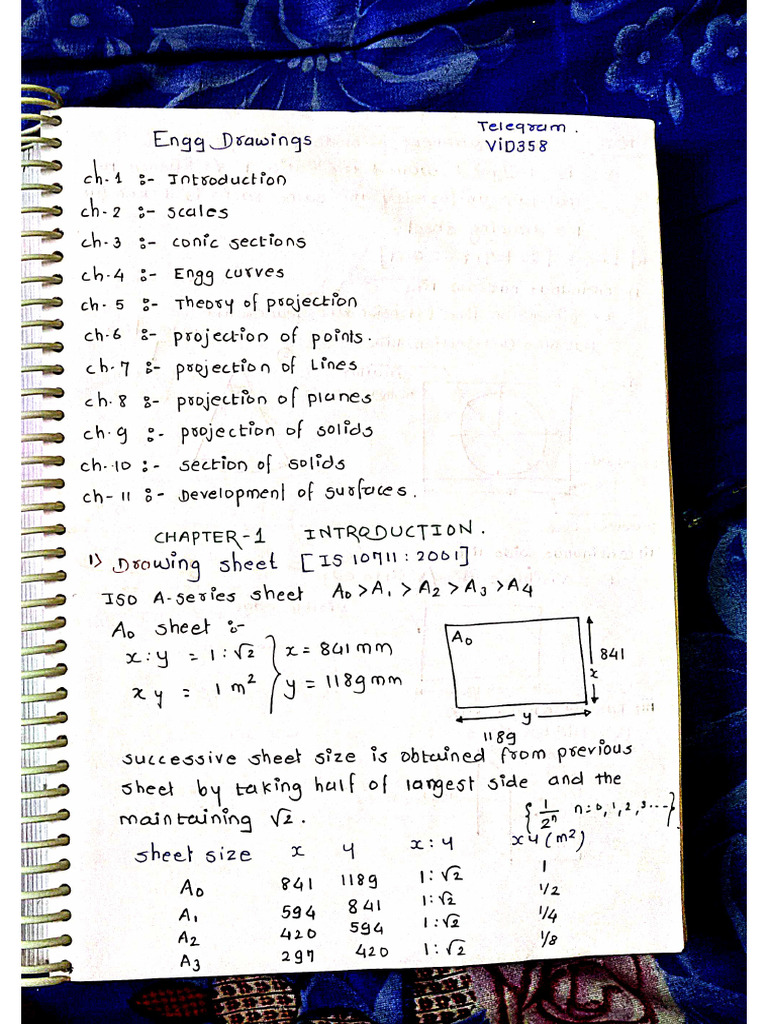 Telegram.
ViD358
Engg Drawings
ch.1 :- Introduction
ch.2 :- scales
ch.3 :- conic sections
ch.4 :- Engg curves
ch.5 :- Theory of projection
ch.6 :- projection of points.
ch.7 :- projection of Lines
ch.8 :- projection of planes
ch.9 :- projection of solids
ch.10 :- section of solids
ch-11 :- Development of surfaces.
CHAPTER-1 INTRODUCTION.
1) Drawing sheet [IS 10711:2001]
ISO A-series sheet A₀ > A₁ > A₂ > A₃ > A₄
A₀ sheet :-
x:y = 1:√2 } x = 841 mm
xy = 1 m² } y = 1189 mm
A₀
841
x
y
1189
successive sheet size is obtained from previous
sheet by taking half of largest side and the
maintaining √2. { 1/2ⁿ n=0,1,2,3---}
sheet size x y x:y xy (m²)
A₀ 841 1189 1:√2 1
A₁ 594 841 1:√2 1/2
A₂ 420 594 1:√2 1/4
A₃ 297 420 1:√2 1/8